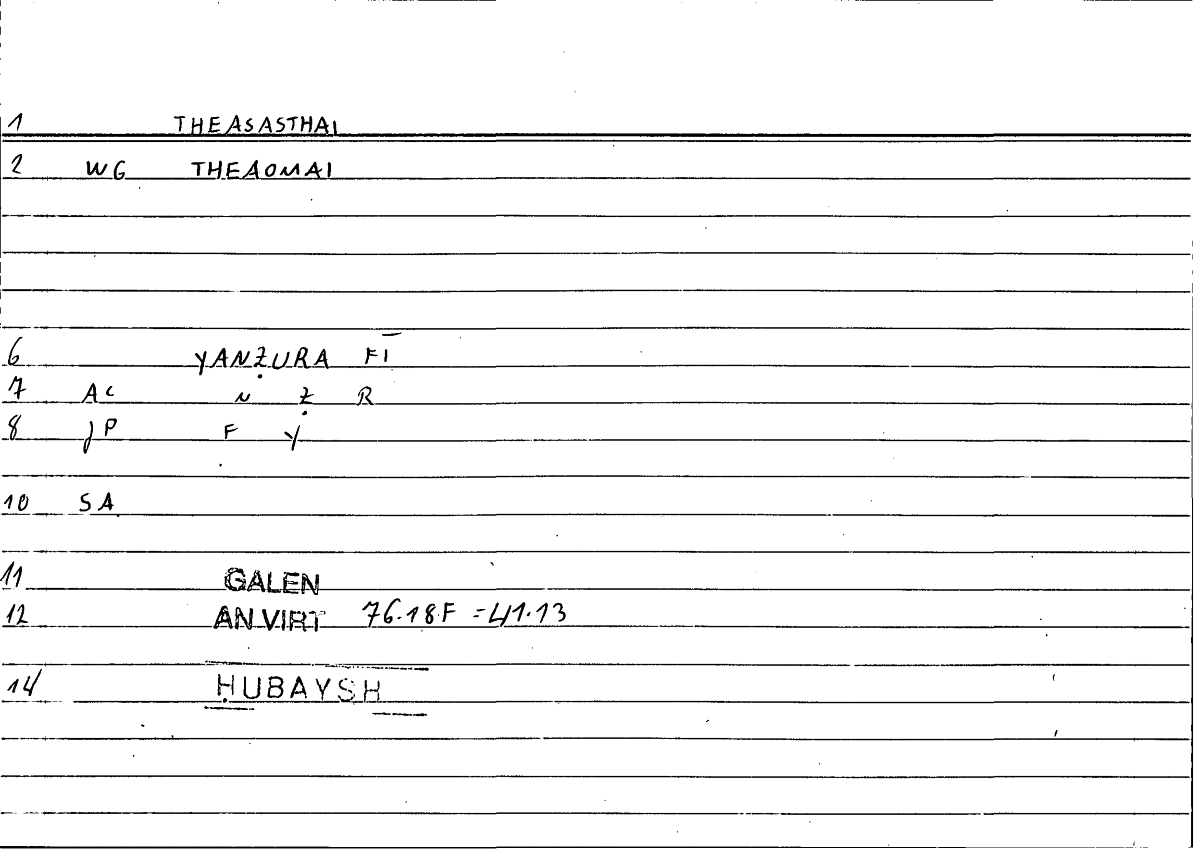 1 THEASASTHAI
2 WG THEAOMAI
6 YANẒURA FĪ
7 AC N Ẓ R
8 JP F Y
10 SA
11 GALEN
12 AN.VIRT 76.18F = 41.13
14 ḤUBAYSH